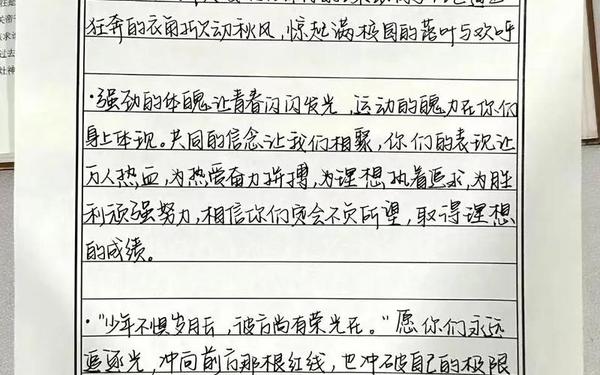 狂奔的衣角吹动秋风，惊起满校园的落叶与欢呼
·强劲的体魄让青春闪闪发光，运动的魄力在你们
身上体现。共同的信念让我们相聚，你们的表现让
万人热血，为热爱奋力拼搏，为理想执着追求，为胜
利顽强努力，相信你们定会不负所望，取得理想
的成绩。
·"少年不惧岁月长，彼方尚有荣光在。"愿你们永远
追逐光，冲向前方那根红线，也冲破自己的极限